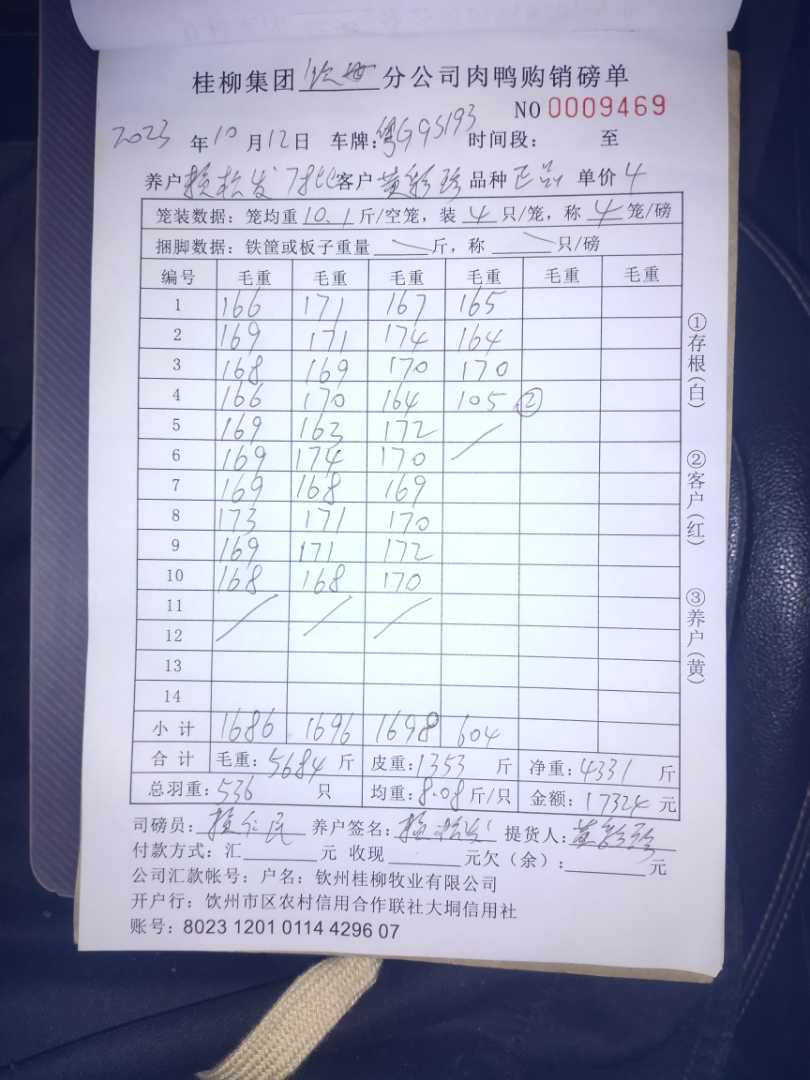 桂柳集团钦州分公司肉鸭购销磅单
NO 0009469
2023年10月12日 车牌:粤G9S193 时间段: 至
养户 发7批客户黄彩珍品种正品单价4
笼装数据：笼均重10.1斤/空笼，装4只/笼，称4笼/磅
捆脚数据：铁筐或板子重量 斤，称 只/磅
编号 毛重 毛重 毛重 毛重 毛重 毛重
1 166 171 167 165
2 169 171 174 164
3 168 169 170 170
4 166 170 164 105 ②
5 169 163 172
6 169 174 170
7 169 168 169
8 173 171 170
9 169 171 172
10 168 168 170
11
12
13
14
小计 1686 1696 1698 604
合计 毛重：5684斤 皮重：1353斤 净重：4331斤
总羽重：536只 均重：8.08斤/只 金额：17324元
司磅员： 养户签名： 提货人：黄彩珍
付款方式：汇 元 收现 元欠（余）： 元
公司汇款帐号：户名：钦州桂柳牧业有限公司
开户行：饮州市区农村信用合作联社大垌信用社
账号：8023 1201 0114 4296 07
①存根(白)
②客户(红)
③养户(黄)